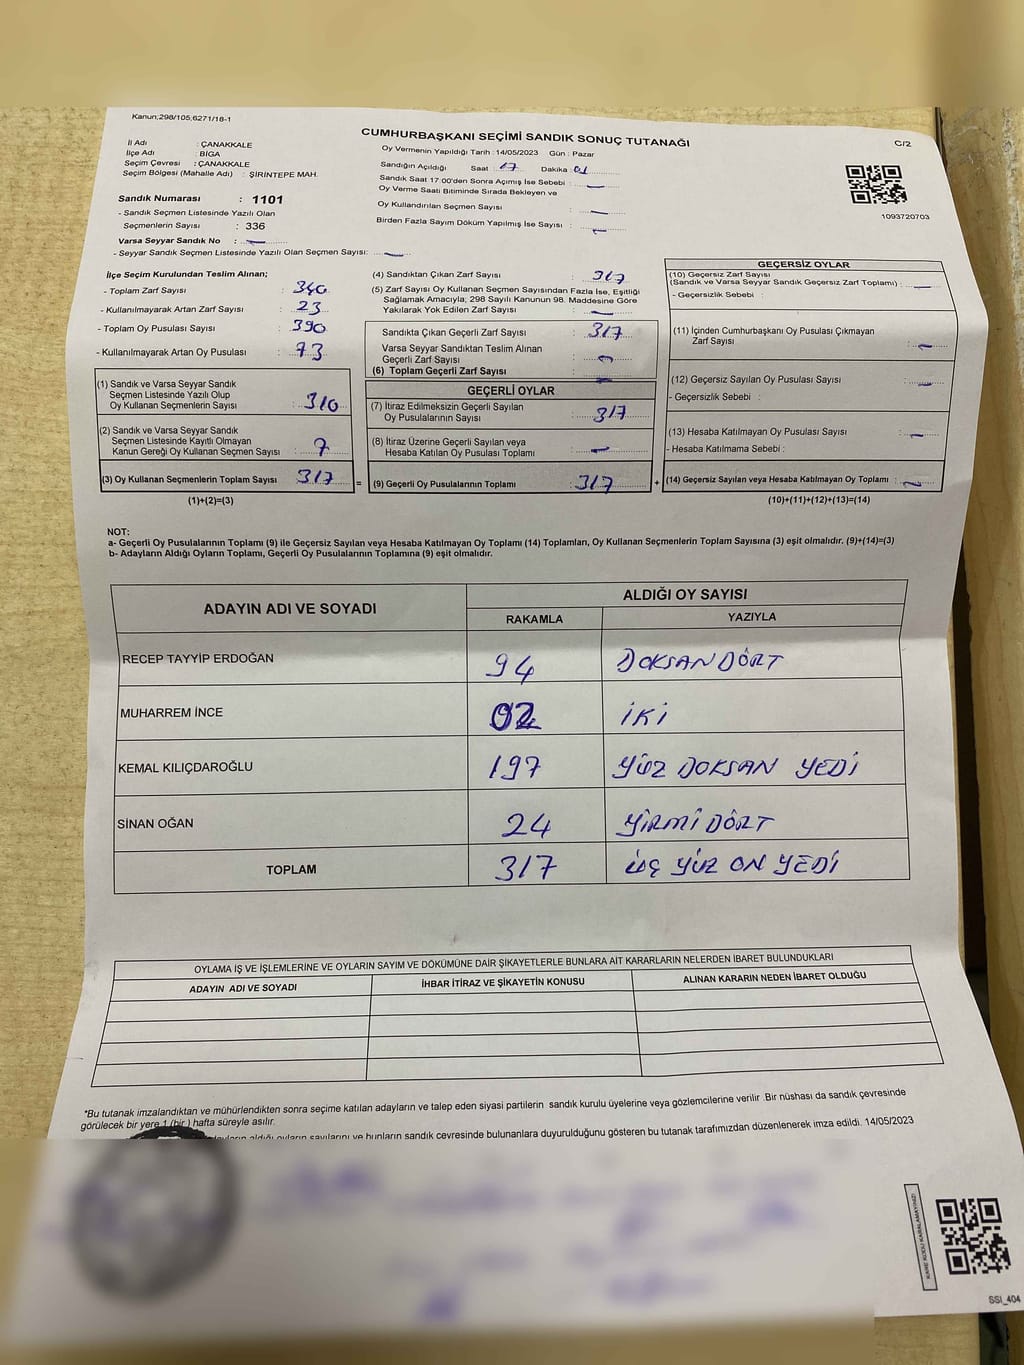 Kanun,298/105,6271/18-1
CUMHURBAŞKANI SEÇİMİ SANDIK SONUÇ TUTANAĞI
C/2
İl Adı : ÇANAKKALE
İlçe Adı : BİGA
Seçim Çevresi : ÇANAKKALE
Seçim Bölgesi (Mahalle Adı) : ŞİRİNTEPE MAH.
Sandık Numarası : 1101
- Sandık Seçmen Listesinde Yazılı Olan
Seçmenlerin Sayısı : 336
Varsa Seyyar Sandık No : —
- Seyyar Sandık Seçmen Listesinde Yazılı Olan Seçmen Sayısı: —
Oy Vermenin Yapıldığı Tarih : 14/05/2023 Gün : Pazar
Sandığın Açıldığı Saat : 17 Dakika : 01
Sandık Saat 17.00'den Sonra Açılmış İse Sebebi : —
Oy Verme Saati Bitiminde Sırada Bekleyen ve
Oy Kullandırılan Seçmen Sayısı : —
Birden Fazla Sayım Döküm Yapılmış İse Sayısı : —
1093720703
İlçe Seçim Kurulundan Teslim Alınan;
- Toplam Zarf Sayısı : 340
- Kullanılmayarak Artan Zarf Sayısı : 23
- Toplam Oy Pusulası Sayısı : 390
- Kullanılmayarak Artan Oy Pusulası : 73
(1) Sandık ve Varsa Seyyar Sandık
Seçmen Listesinde Yazılı Olup
Oy Kullanan Seçmenlerin Sayısı : 310
(2) Sandık ve Varsa Seyyar Sandık
Seçmen Listesinde Kayıtlı Olmayan
Kanun Gereği Oy Kullanan Seçmen Sayısı : 7
(3) Oy Kullanan Seçmenlerin Toplam Sayısı : 317
(1)+(2)=(3)
=
(4) Sandıktan Çıkan Zarf Sayısı : 317
(5) Zarf Sayısı Oy Kullanan Seçmen Sayısından Fazla İse, Eşitliği
Sağlamak Amacıyla, 298 Sayılı Kanunun 98. Maddesine Göre
Yakılarak Yok Edilen Zarf Sayısı : —
Sandıkta Çıkan Geçerli Zarf Sayısı : 317
Varsa Seyyar Sandıktan Teslim Alınan
Geçerli Zarf Sayısı : —
(6) Toplam Geçerli Zarf Sayısı : —
GEÇERLİ OYLAR
(7) İtiraz Edilmeksizin Geçerli Sayılan
Oy Pusulalarının Sayısı : 317
(8) İtiraz Üzerine Geçerli Sayılan veya
Hesaba Katılan Oy Pusulası Toplamı : —
(9) Geçerli Oy Pusulalarının Toplamı : 317
+
GEÇERSİZ OYLAR
(10) Geçersiz Zarf Sayısı
(Sandık ve Varsa Seyyar Sandık Geçersiz Zarf Toplamı) : —
- Geçersizlik Sebebi :
(11) İçinden Cumhurbaşkanı Oy Pusulası Çıkmayan
Zarf Sayısı : —
(12) Geçersiz Sayılan Oy Pusulası Sayısı : —
- Geçersizlik Sebebi :
(13) Hesaba Katılmayan Oy Pusulası Sayısı : —
- Hesaba Katılmama Sebebi :
(14) Geçersiz Sayılan veya Hesaba Katılmayan Oy Toplamı : —
(10)+(11)+(12)+(13)=(14)
NOT:
a- Geçerli Oy Pusulalarının Toplamı (9) ile Geçersiz Sayılan veya Hesaba Katılmayan Oy Toplamı (14) Toplamları, Oy Kullanan Seçmenlerin Toplam Sayısına (3) eşit olmalıdır. (9)+(14)=(3)
b- Adayların Aldığı Oyların Toplamı, Geçerli Oy Pusulalarının Toplamına (9) eşit olmalıdır.
ADAYIN ADI VE SOYADI
ALDIĞI OY SAYISI
RAKAMLA YAZIYLA
RECEP TAYYİP ERDOĞAN 94 DOKSAN DÖRT
MUHARREM İNCE 02 İKİ
KEMAL KILIÇDAROĞLU 197 YÜZ DOKSAN YEDİ
SİNAN OĞAN 24 YİRMİ DÖRT
TOPLAM 317 ÜÇ YÜZ ON YEDİ
OYLAMA İŞ VE İŞLEMLERİNE VE OYLARIN SAYIM VE DÖKÜMÜNE DAİR ŞİKAYETLERLE BUNLARA AİT KARARLARIN NELERDEN İBARET BULUNDUKLARI
ADAYIN ADI VE SOYADI İHBAR İTİRAZ VE ŞİKAYETİN KONUSU ALINAN KARARIN NEDEN İBARET OLDUĞU
*Bu tutanak imzalandıktan ve mühürlendikten sonra seçime katılan adayların ve talep eden siyasi partilerin sandık kurulu üyelerine veya gözlemcilerine verilir .Bir nüshası da sandık çevresinde
görülecek bir yere 1 (bir ) hafta süreyle asılır.
aldığı oyların sayılarını ve bunların sandık çevresinde bulunanlara duyurulduğunu gösteren bu tutanak tarafımızdan düzenlenerek imza edildi. 14/05/2023
KARE KODU KARALAMAYINIZ!
SSI_404